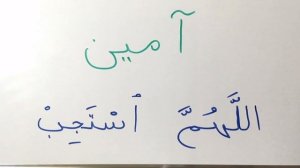 آمين
اللَّهُمَّ ٱسْتَجِبْ